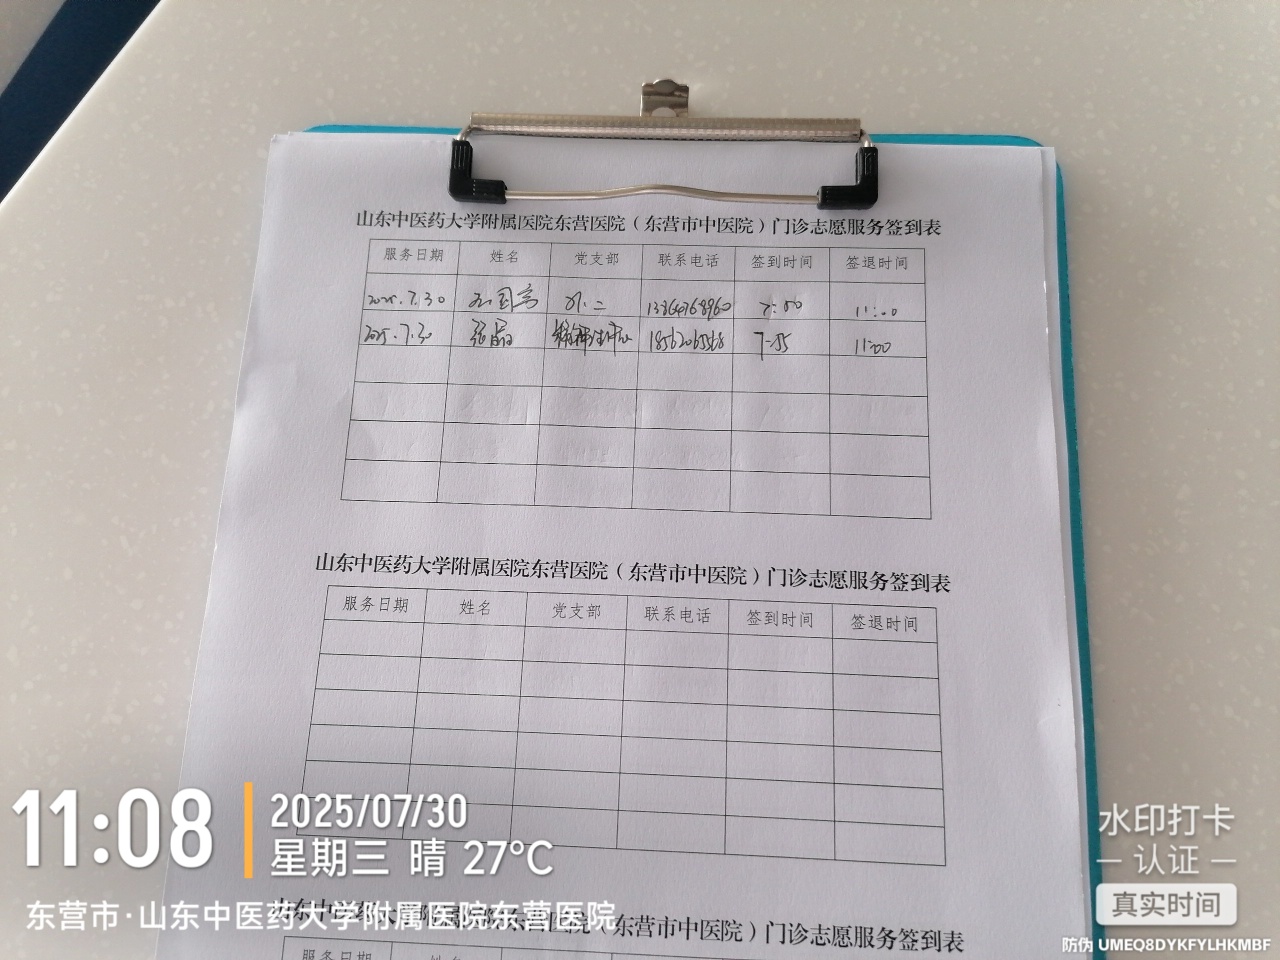 山东中医药大学附属医院东营医院（东营市中医院）门诊志愿服务签到表
服务日期 姓名 党支部 联系电话 签到时间 签退时间
2025.7.30 外二 13864768960 7:50 11:00
2025.7.30 张晶 7-55 11:00
山东中医药大学附属医院东营医院（东营市中医院）门诊志愿服务签到表
服务日期 姓名 党支部 联系电话 签到时间 签退时间
山东中医药大学附属医院东营医院（东营市中医院）门诊志愿服务签到表
服务日期 姓名
11:08
2025/07/30
星期三 晴 27°C
东营市·山东中医药大学附属医院东营医院
水印打卡
认证
真实时间
防伪 UMEQ8DYKFYLHKMBF